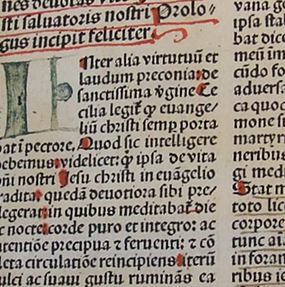 nes deuotas
sti saluatoris nostri Prolo-
gus incipit feliciter.
INter alia virtutuū et
laudum preconia: de
sanctissima v̄gine Ce
cilia legit᷑ ꝙ euange-
liū christi semꝑ porta
bat ī pectore. Quod sic intelligere
debemus: videlicet: ꝙ ipsa de vita
dn̄i nostri Jesu christi in euāgelio
tradita: quedā deuotiora sibi pre-
legerat: in quibus meditabat᷑ die
ac nocte: corde puro et integro: ac
ītentiōe precipua ⁊ feruenti: ⁊ cō
pleta circulatiōe reīncipiens: iterū
dulci ac suaui gustu ruminās ea
vana
ipsa stabi
bat. dice
meū im
cūdo fo
aduersa
ca quoc
mone su
martyri
neribus
gi medi
Stat m
toto lic
corpore
tunc ai
in foran
ribus ie